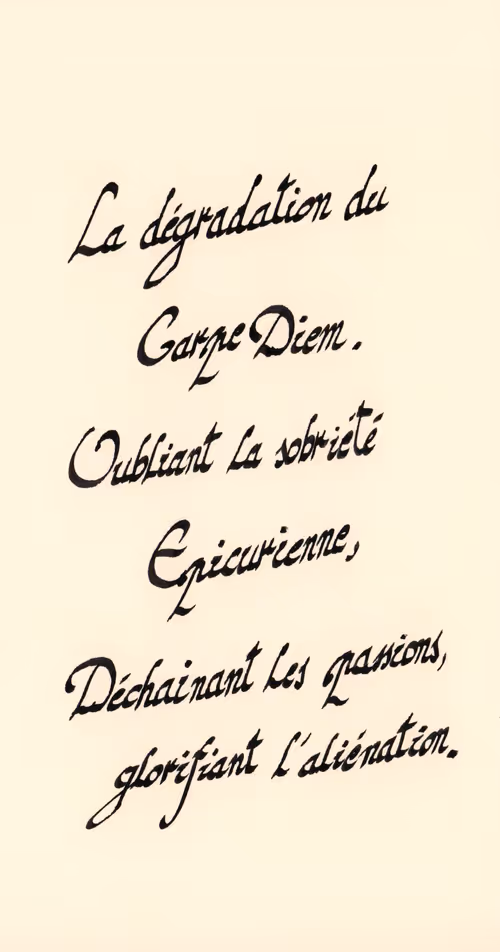 La dégradation du
Carpe Diem.
Oubliant la sobriété
Epicurienne,
Déchainant les passions,
glorifiant l'aliénation.